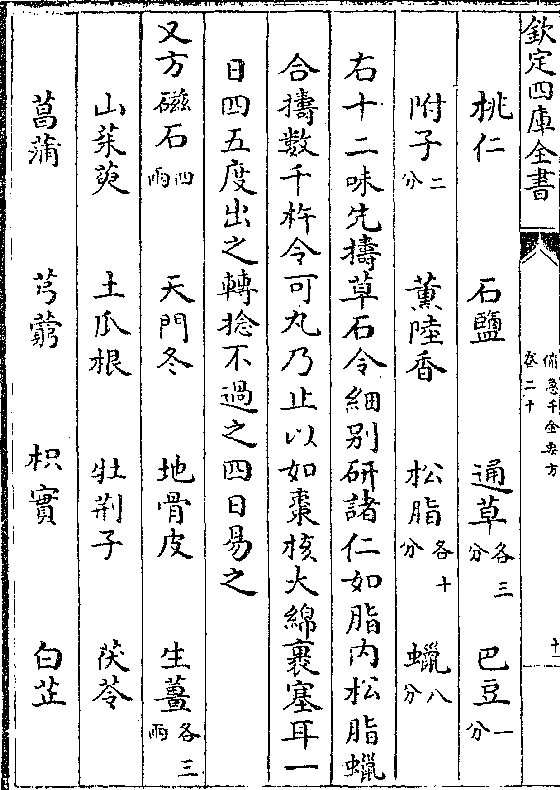 欽定四庫全書
備急千金要方
卷二十
十
桃仁 石鹽 通草各三分 巴豆一分
附子二分 薰陸香 松脂各十分 蠟八分
右十二味先擣草石令細别研諸仁如脂内松脂蠟
合擣數千杵令可丸乃止以如棗核大綿裹塞耳一
日四五度出之轉捻不過之四日易之
又方磁石四兩 天門冬 地骨皮 生薑各三兩
山茱萸 土瓜根 牡荆子 茯苓
菖蒲 芎藭 枳實 白芷